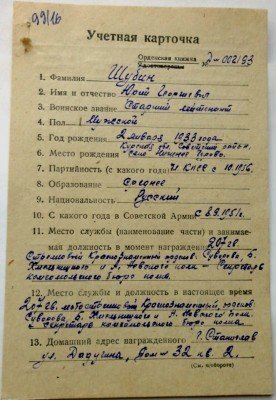 99/16
Учетная карточка
Орденская книжка
Удостоверение № Д-002193
1. Фамилия Шубин
2. Имя и отчество Юрий
3. Воинское звание Старший лейтенант
4. Пол Мужской
5. Год рождения 2 января 1933 года
Курская обл. Советский район,
6. Место рождения село Нижнее
7. Партийность (с какого года) чл КПСС с 10.1956.
8. Образование Среднее
9. Национальность Русский
10. С какого года в Советской Армии с 8.9.1951г.
11. Место службы (наименование части) и занимае-
мая должность в момент награждения 20 гв
Краснознаменный Суворова, Б.
Хмельницкого и А. Невского полк - Секретарь
комсомольского бюро полка.
12. Место Службы и должность в настоящее время
20 гв. Краснознаменный,
Суворова Б. Хмельницкого и А. Невского полк
- Секретарь комсомольского бюро полка.
13. Домашний адрес награжденного г. Станислав
ул. Дадугина, дом-32 кв 2.
(См. н/обороте)